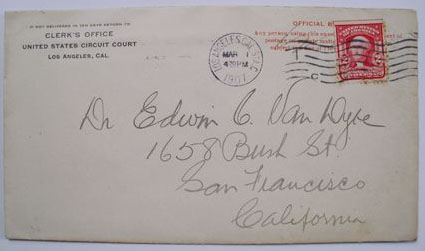 IF NOT DELIVERED IN TEN DAYS RETURN TO
CLERK'S OFFICE
UNITED STATES CIRCUIT COURT
LOS ANGELES, CAL.
LOS ANGELES, CAL.
MAR 1
4 PM
1907
OFFICIAL
Any person using this
Dr Edwin C. Van Dyke
1658 Bush St.
San Francisco
California